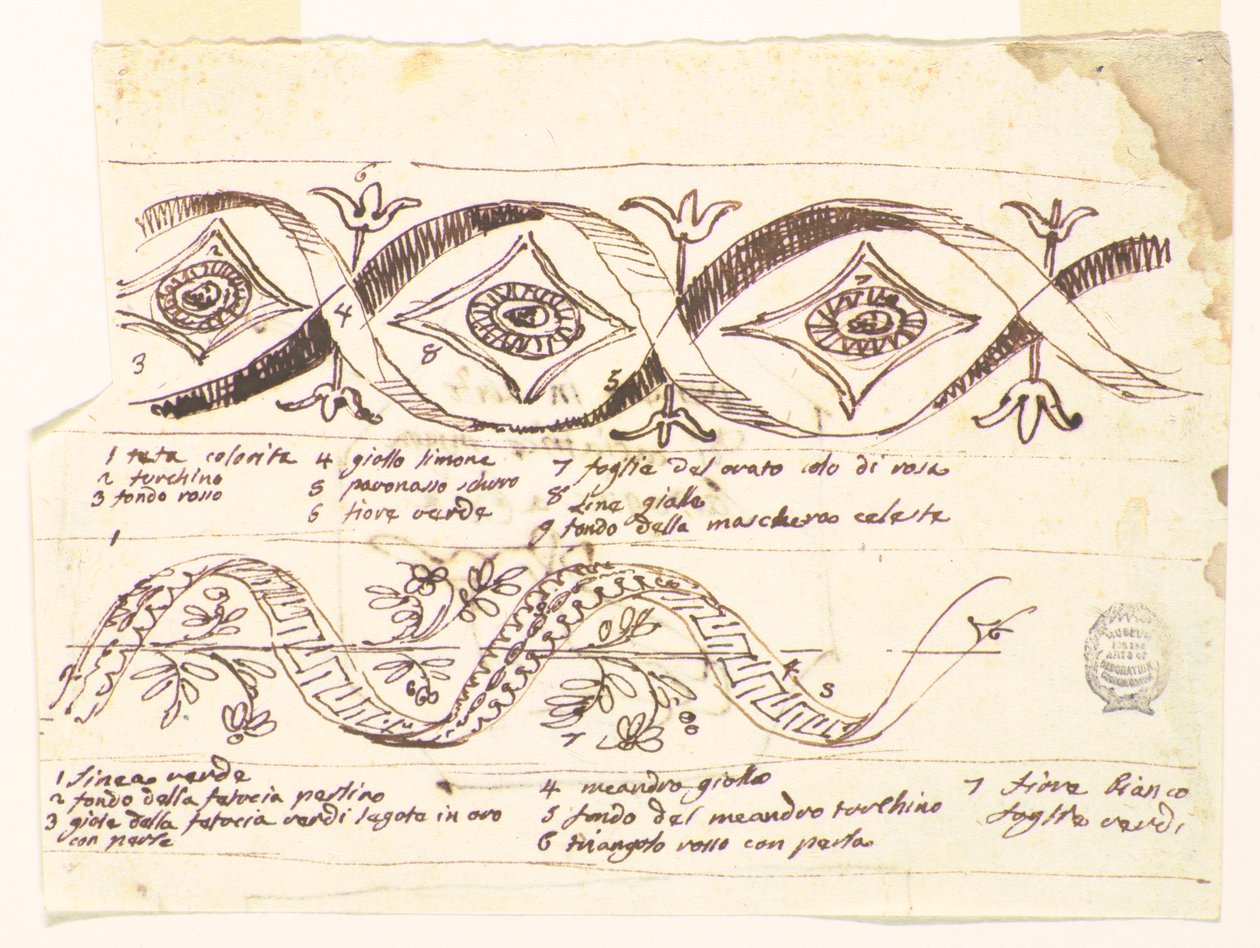 6
2
7
4
3
8
5
1 teta colorita
2 turchino
3 fondo rosso
4 giallo limone
5 pavonasso schuro
6 fiore verde
7 foglie del ovato colo di rosa
8 Line gialle
9 fondo della maschera celeste
1
2
6
4
5
7
1 linea verde
2 fondo della fatucia perlino
3 gioie della fatucia verdi legate in oro
con perle
4 meandro giallo
5 fondo del meandro turchino
6 triangolo rosso con perla
7 fiore bianco
foglie verdi
MUSEUM
FOR THE
ARTS OF
DECORATION